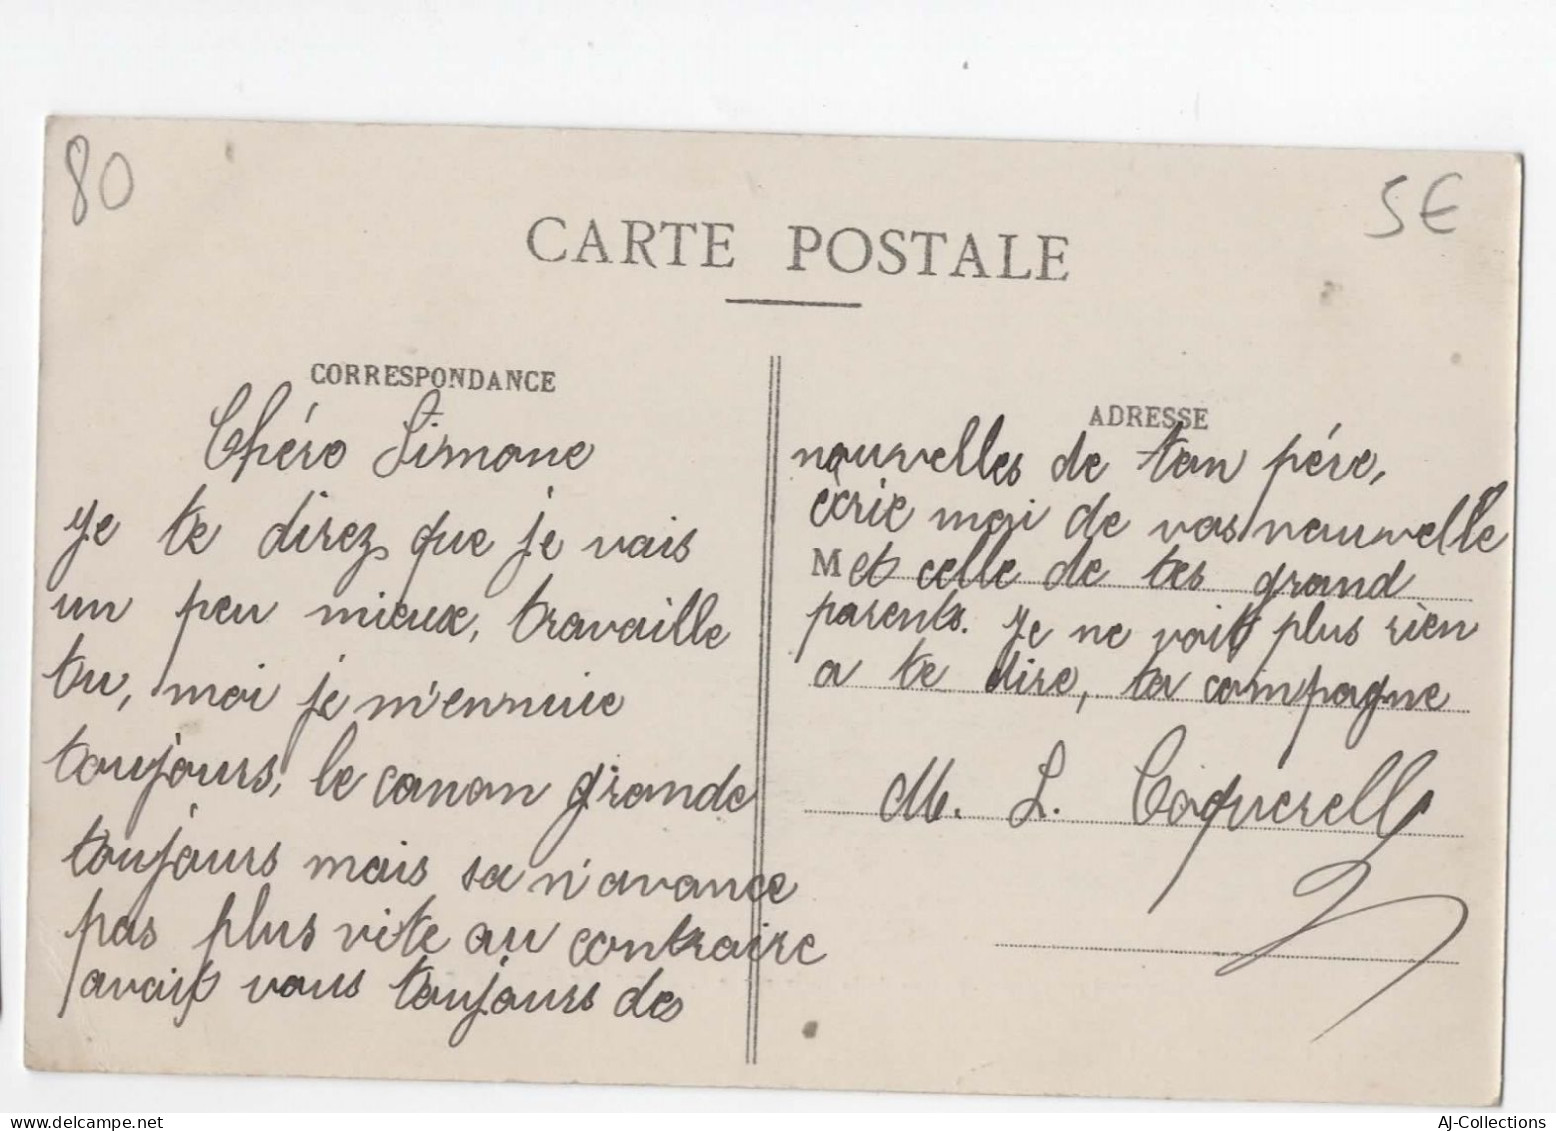 80
5€
CARTE POSTALE
CORRESPONDANCE
Chére Simone
je te direz que je vais
un peu mieux, travaille
tu, moi je m'ennuie
toujours, le canon grande
toujours mais sa n'avance
pas plus vite au contraire
avait vous toujours des
ADRESSE
nouvelles de ton pére,
ècrie moi de vos nouvelle
M et celle de tes grand
parents. Je ne voit plus rien
a te dire, ta compagne
M. L. Coquerelle
delcampe.net
AJ-Collections